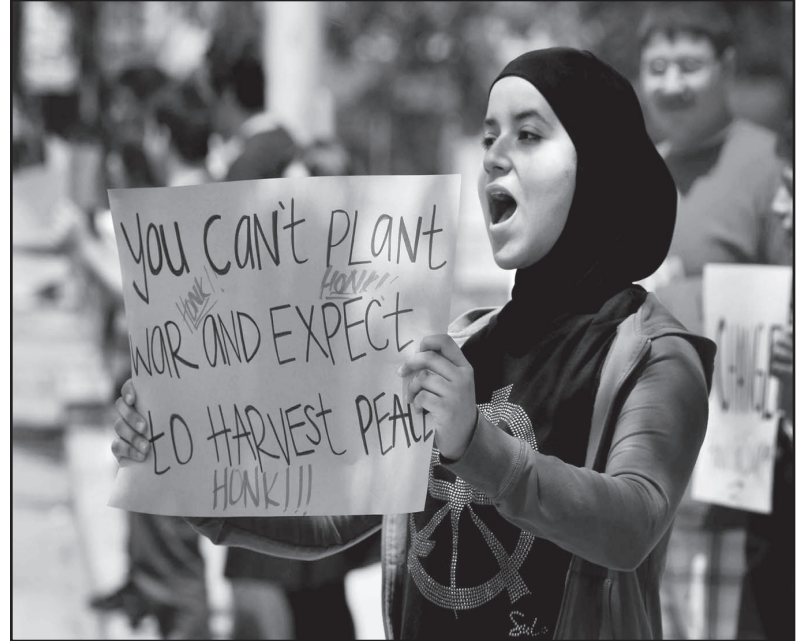 YOU CAN'T PLANT
HONK! HONK!!
WAR AND EXPECT
TO HARVEST PEACE
HONK!!!
CHANGE
Soul